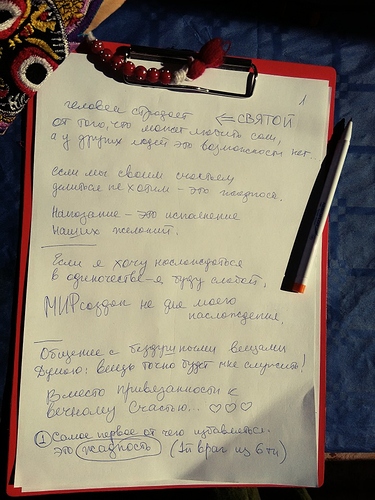 1
человек страдает ⇐ СВЯТОЙ
от того, что может любить сам,
а у других людей это возможности нет...
если мы своим счастьем
делиться не хотим - это жадность.
Наказание - это исполнение
наших желаний.
Если я хочу наслаждаться
в одиночестве - я буду слабой.
МИР создан не для моего
наслаждения.
Общение с бездушными вещами
Думаю: вещь точно будет мне служить!
Вместо привязанности к
вечному счастью... ♡♡♡
① Самое первое от чего избавляться.
это жадность (1й враг из 6ти)